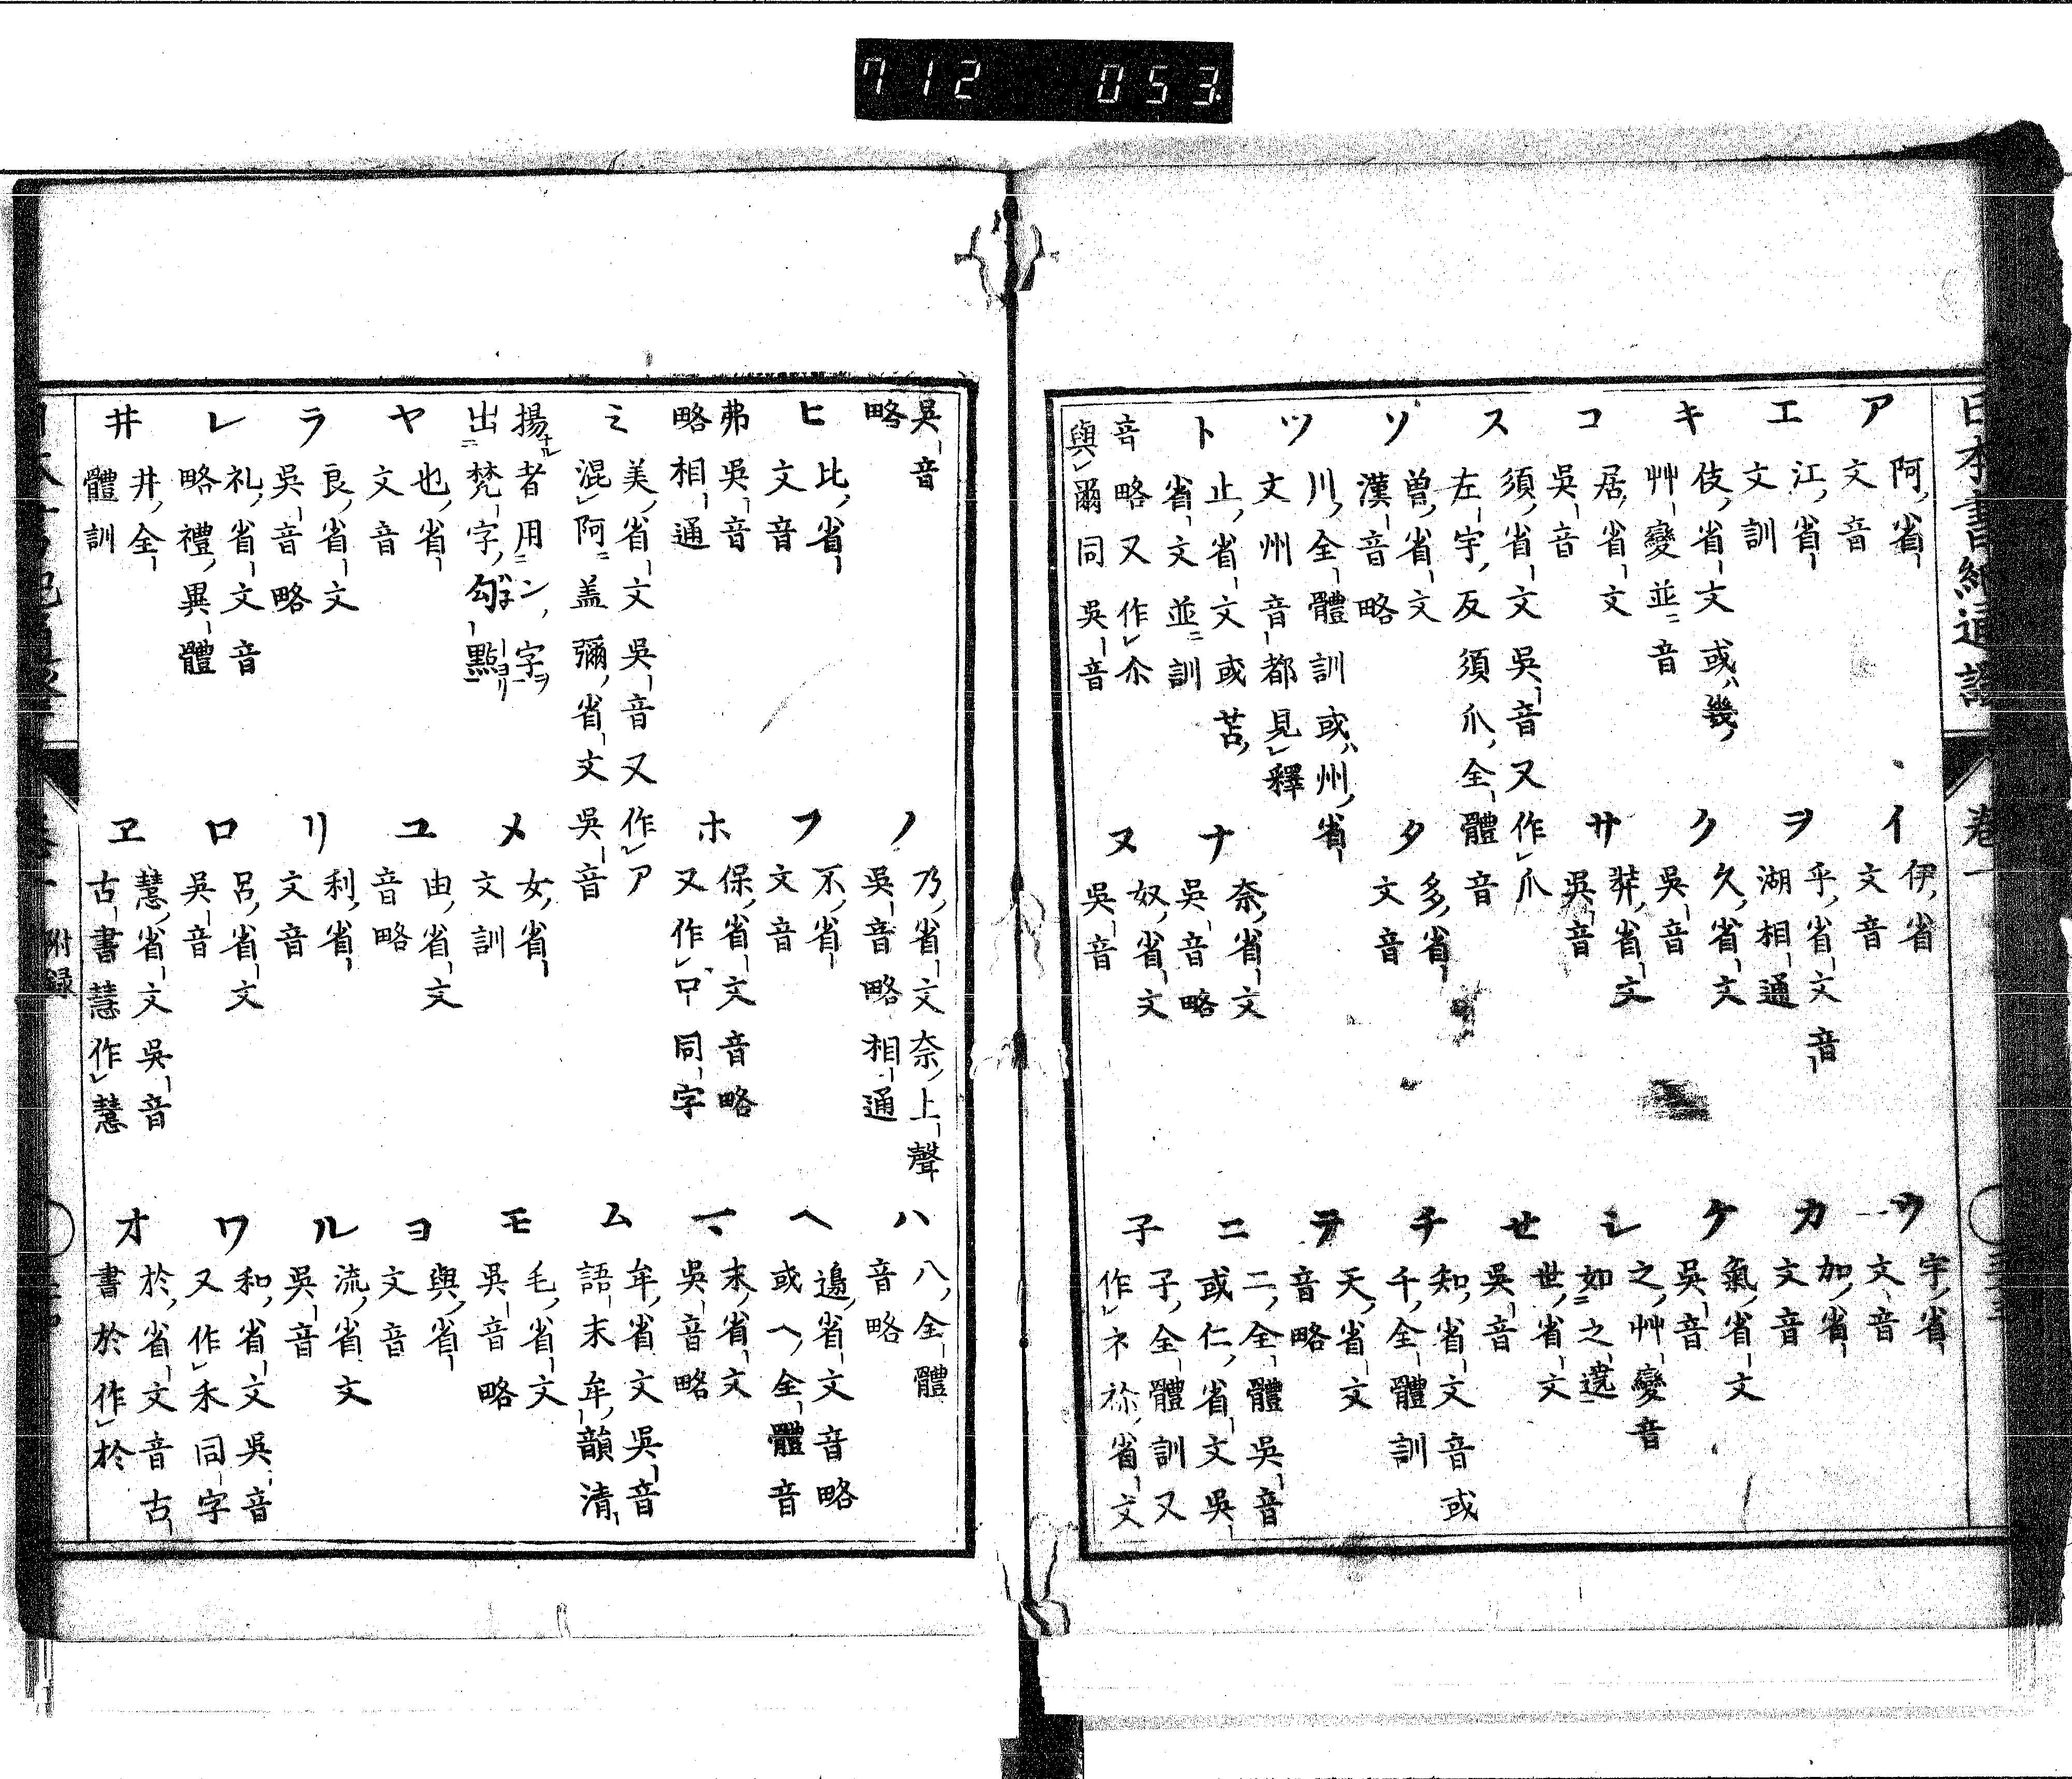 日本書紀通證 卷一
ア 阿省文音 イ 伊省文音 ウ 宇省文音
エ 江省文訓 ヲ 乎省文音湖相通 カ 加省文音
キ 伎省文或ハ幾艸變並ニ音 ク 久省文吳音 ケ 氣省文吳音
コ 居省文吳音 サ 弉省文吳音 シ 之艸變音如之遶
ス 須省文吳音又作レ爪左字反須爪全體音 セ 世省文吳音
ソ 曽省文漢音略 タ 多省文音 チ 知省文音或千全體訓
ツ 川全體訓或ハ州省文州音都見レ釋 テ 天省文音略
ト 止省文或苫省文並ニ訓 ナ 奈省文吳音略 ニ 二全體吳音或仁省文吳
音略又作レ尒與レ爾同吳音 ヌ 奴省文吳音 子 子全體訓又作レネ祢省文
吳音略 ノ 乃省文奈上聲吳音略相通 ハ 八全體音略
ヒ 比省文音 フ 不省文音 ヘ 邉省文音略或ヘ全體音
弗吳音略相通 ホ 保省文音略又作レ同字 マ 末省文吳音略
ミ 美省文吳音又作レア混レ阿ニ盖彌省文吳音 ム 牟省文吳音語末牟韻清
揚ナル者用ニン字ヲ一出ニ梵字勾點ヨリ一 メ 女省文訓 モ 毛省文吳音略
ヤ 也省文音 ユ 由省文音略 ヨ 與省文音
ラ 良省文吳音略 リ 利省文音 ル 流省文吳音
レ 礼省文音略禮異體 ロ 呂省文吳音 ワ 和省文吳音又作レ禾同字
井 井全體訓 ヱ 慧省文吳音古書慧作レ慧 オ 於省文音古書於作レ扵
附録
712 053